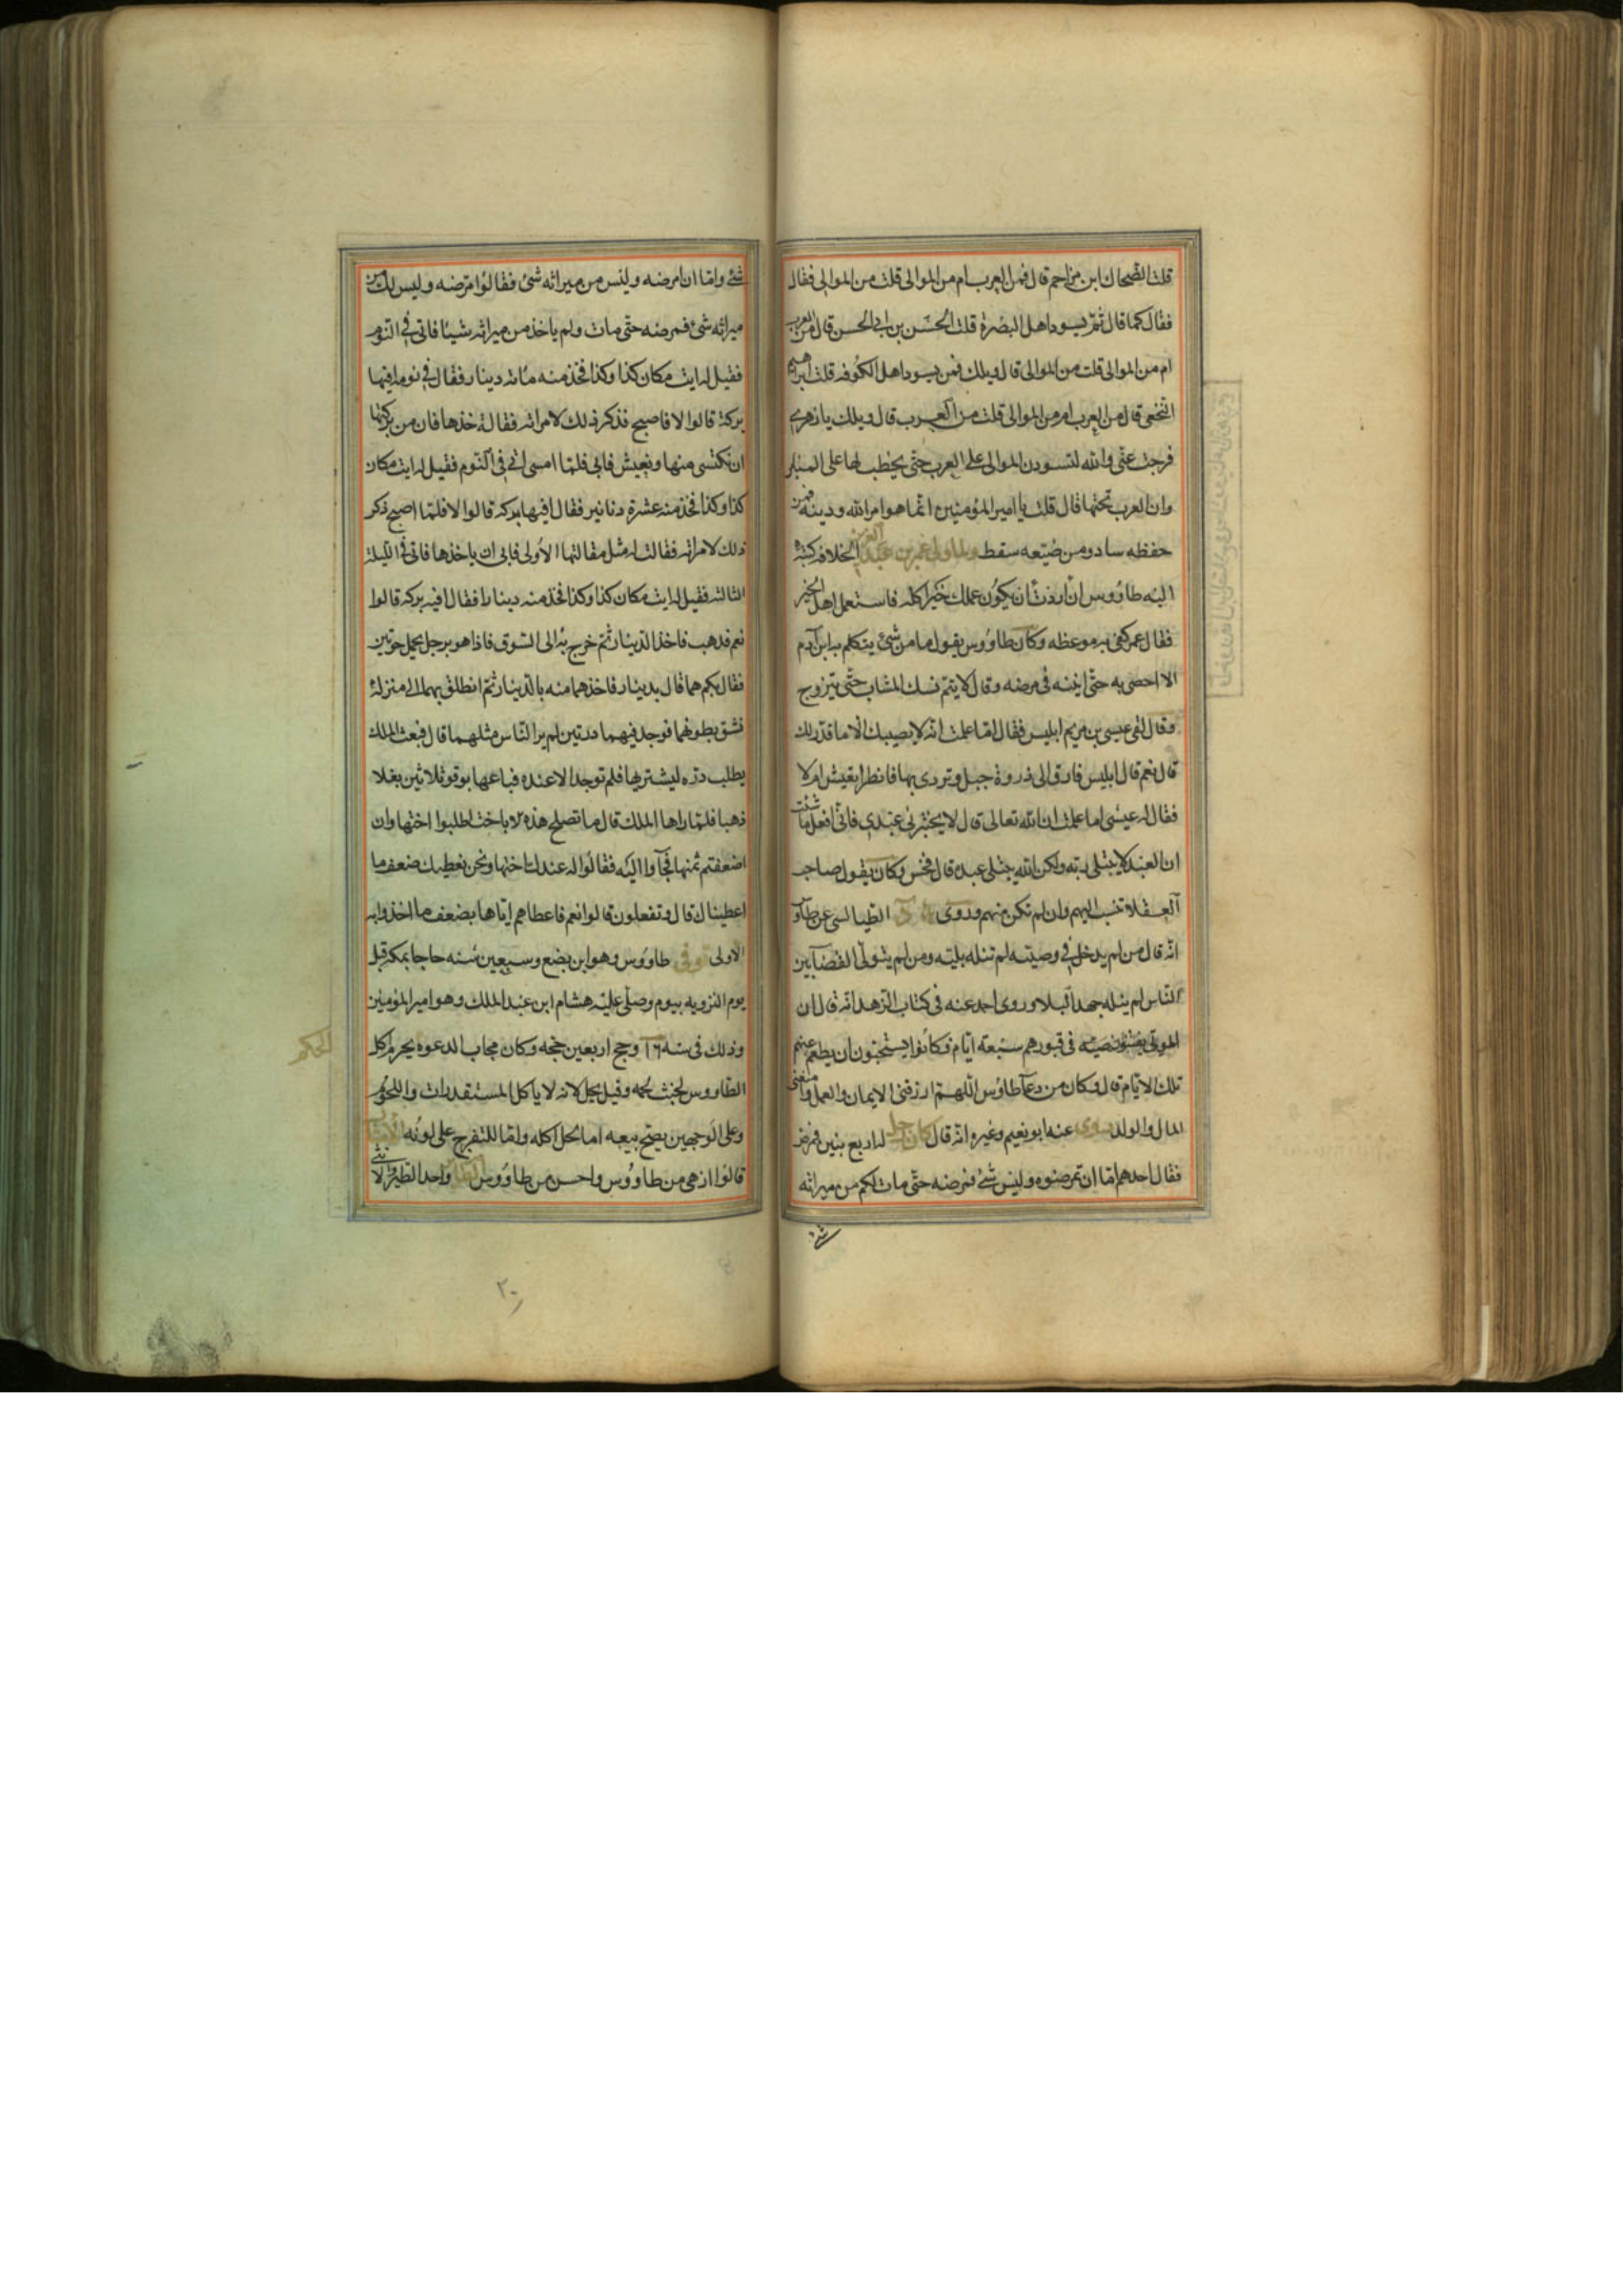 قلت الضحاك ابن مزاحم قال فمن العرب ام من الموالى قلت من الموالى فقال
فقال كما قال ثم من يسود اهل البصرة قلت الحسن بن ابى الحسن قال من العرب
ام من الموالى قلت من الموالى قال ويلك فمن يسود اهل الكوفه قلت ابرهيم
النخعى قال من العرب ام من الموالى قلت من العرب قال ويلك يا زهرى
فرجت عنى والله لتسودن الموالى على العرب حتى يخطب لها على المنابر
وان العرب تحتها قال قلت يا امير المؤمنين انما هو امر الله ودينه فمن
حفظه ساد ومن ضيعه سقط ولما ولى عمر بن عبد العزيز الخلافه كتب
اليه طاووس ان اردت ان يكون عملك خيرا كله فاستعمل اهل الخير
فقال عمر كفى به موعظه وكان طاووس يقول ما من شئ يتكلم به ابن آدم
الا احصى به حتى انينه فى مرضه وقال لا يتم نسك الشاب حتى يتزوج
وقال لقى عيسى بن مريم ابليس فقال اما علمت انه لا يصيبك الا ما قدر لك
قال نعم قال ابليس فارق الى ذروة جبل وتردى بها فانظر ايعيش ام لا
فقال له عيسى اما علمت ان الله تعالى قال لا يختبرنى عبدى فانى افعل ما شئت
ان العبد لا يبتلى ربه ولكن الله يبتلى عبده قال فخس وكان يقول صاحب
العقلا تنسب اليهم وان لم تكن منهم وروى الطيالسى عن طاو
انه قال من لم يدخل فى وصيته لم تنله بليته ومن لم يتولى القضا بين
الناس لم ينله جهد البلا وروى احمد عنه فى كتاب الزهد انه قال ان
الموتى يفتنون فى قبورهم سبعة ايام فكانوا يستحبون ان يطعم عنهم
تلك الايام قال وكان من دعآ طاوس اللهم ارزقنى الايمان والعمل وامتعنى
المال والولد روى عنه ابو نعيم وغيره انه قال كان رجل له اربع بنين فمرض
فقال احدهم اما ان تمرضوه وليس شئ فمرضه حتى مات لكم من ميراثه
شئ
شئ واما ان امرضه وليس من ميراثه شئ فقالوا مرضه وليس لك من
ميراثه شئ فمرضه حتى مات ولم ياخذ من ميراثه شيئا فاتى فى النوم
فقيل له ايت مكان كذا وكذا فخذ منه مائة دينار فقال فى نومه افيها
بركة قالوا لا فاصبح فذكر ذلك لامراته فقالت خذها فان من بركتها
ان نكتسى منها ونعيش فابى فلما امسى اتى فى النوم فقيل له ايت مكان
كذا وكذا فخذ منه عشرة دنانير فقال افيها بركه قالوا لا فلما اصبح ذكر
ذلك لامراته فقالت له مثل مقالتها الاولى فابى ان ياخذها فاتى فى الليلة
الثالثه فقيل له ايت مكان كذا وكذا فخذ منه دينارا فقال افيه بركه قالوا
نعم فدهب فاخذ الدينار ثم خرج به الى السوق فاذا هو برجل يحمل حوتين
فقال بكم هما قال بدينار فاخذهما منه بالدينار ثم انطلق بهما الى منزله
فشق بطونهما فوجد فيهما درتين لم ير الناس مثلهما قال فبعث الملك
يطلب دره ليشتريها فلم توجد الا عنده فباعها بوقر ثلاثين بغلا
ذهبا فلما راها الملك قال ما تصلح هذه الا باخت اطلبوا اختها وان
اضعفتم ثمنها فجآوا اليه فقالوا له عندك اختها ونحن نعطيك ضعف ما
اعطيناك قال وتفعلون قالوا نعم فاعطاهم اياها بضعف ما اخذوا به
الاولى توفى طاووس وهو ابن بضع وسبعين سنه حاجا بمكه قبل
يوم التزويه بيوم وصلى عليه هشام ابن عبد الملك وهو امير المؤمنين
وذلك فى سنه ١٠٦ وحج اربعين حجه وكان مجاب الدعوه يحرم اكل
الحكم
الطاووس لخبث لحمه وقيل يحل لانه لا ياكل المستقذرات واللحوم
وعلى الوجهين يصح بيعه اما لحل اكله واما للتفرج على لونه الامثال
قالوا ازهى من طاووس واحسن من طاووس الطاير واحد الطير والانثى
٢٠